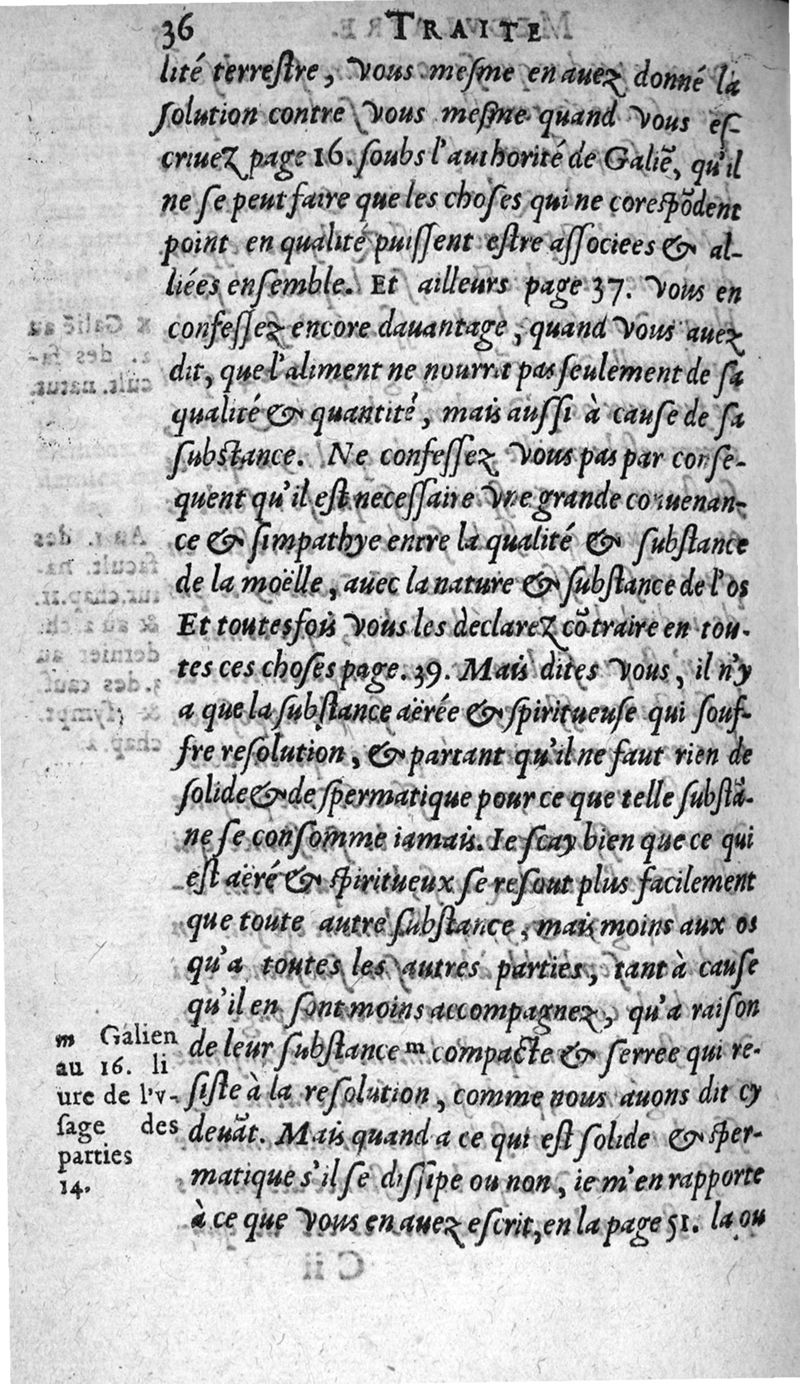 36 TRAITE
lité terrestre, vous mesme en auez donné la
solution contre vous mesme quand vous es-
criuez page 16. soubs l'authorité de Galiẽ, qu'il
ne se peut faire que les choses qui ne corespõdent
point en qualité puissent estre associees & al-
liées ensemble. Et ailleurs page 37. vous en
confessez encore dauantage, quand vous auez
dit, que l'aliment ne nourrit pas seulement de sa
qualité & quantité, mais aussi à cause de sa
substance. Ne confessez vous pas par conse-
quent qu'il est necessaire vne grande conuenan-
ce & simpathye entre la qualité & substance
de la moëlle, auec la nature & substance de l'os
Et toutesfois vous les declarez cõtraire en tou-
tes ces choses page. 39. Mais dites vous, il n'y
a que la substance aërée & spiritueuse qui souf-
fre resolution, & partant qu'il ne faut rien de
solide & de spermatique pour ce que telle substã-
ne se consomme iamais. Ie scay bien que ce qui
est aëré & spiritueux se resout plus facilement
que toute autre substance, mais moins aux os
qu'a toutes les autres parties, tant à cause
qu'il en sont moins accompagnez, qu'a raison
de leur substance m compacte & serree qui re-
siste à la resolution, comme nous auons dit cy
deuãt. Mais quand a ce qui est solide & sper-
matique s'il se dissipe ou non, ie m'en rapporte
à ce que vous en auez escrit, en la page 51. la ou
m Galien
au 16. li
ure de l'v-
sage des
parties
14.